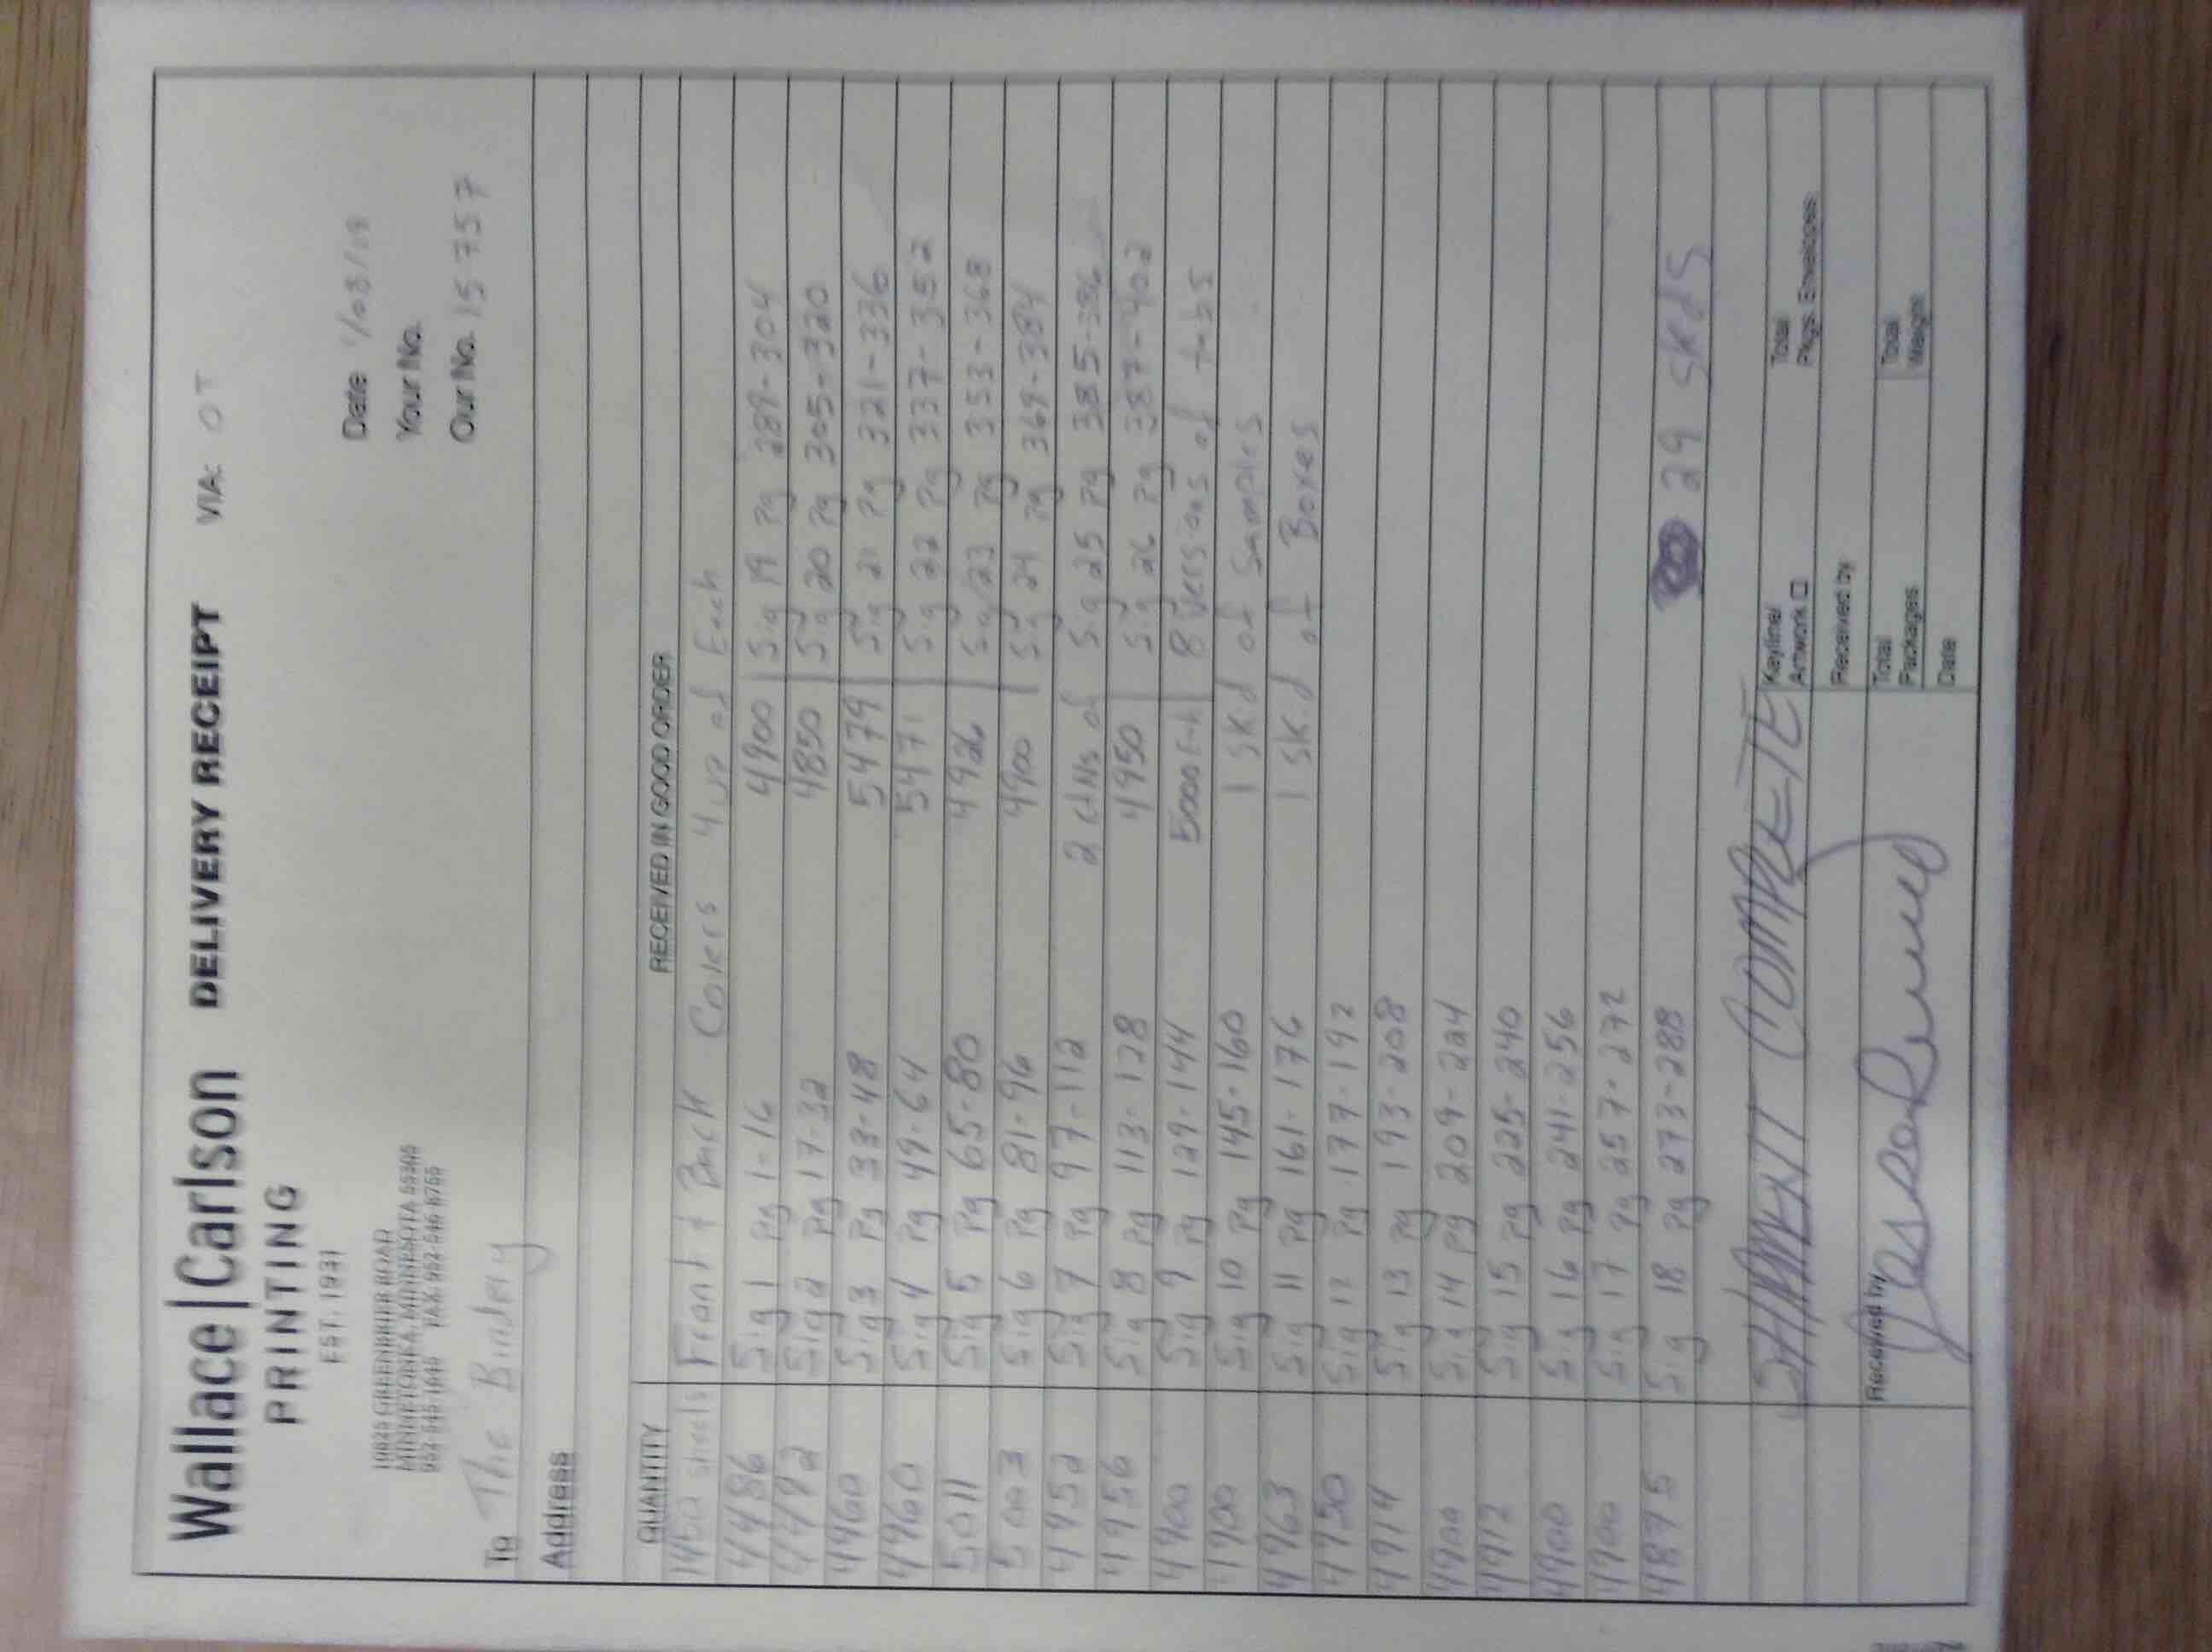 Wallace|Carlson DELIVERY RECEIPT VIA: OT
PRINTING
EST. 1931
10825 GREENBRIER ROAD
MINNETONKA, MINNESOTA 55305
FAX
Date 1/08/18
Your No.
Our No. 15757
To The Bindery
Address
QUANTITY RECEIVED IN GOOD ORDER
sheets Front & Back Covers 4 up of Each
Sig 1 Pg 1-16 4900 Sig 19 Pg 289-304
Sig 2 Pg 17-32 4850 Sig 20 Pg 305-320
Sig 3 Pg 33-48 5479 Sig 21 Pg 321-336
4960 Sig 4 Pg 49-64 5471 Sig 22 Pg 337-352
5011 Sig 5 Pg 65-80 4926 Sig 23 Pg 353-368
5003 Sig 6 Pg 81-96 4900 Sig 24 Pg 369-384
4952 Sig 7 Pg 97-112 2 ctNs of Sig 25 Pg 385-386
4956 Sig 8 Pg 113-128 4950 Sig 26 Pg 387-402
4900 Sig 9 Pg 129-144 5000 Eah 8 Versions of tabs
4900 Sig 10 Pg 145-160 1 SKid of Samples
4963 Sig 11 Pg 161-176 1 SKid of Boxes
4950 Sig 12 Pg 177-192
4914 Sig 13 Pg 193-208
4900 Sig 14 Pg 209-224
4912 Sig 15 Pg 225-240
4900 Sig 16 Pg 241-256
4900 Sig 17 Pg 257-272
4875 Sig 18 Pg 273-288 29 SKds
SHIPMENT COMPLETE
Keyline/
Artwork
Total
Pkgs. Envelopes
Received by
Received by
Total
Packages
Total
Weight
Date